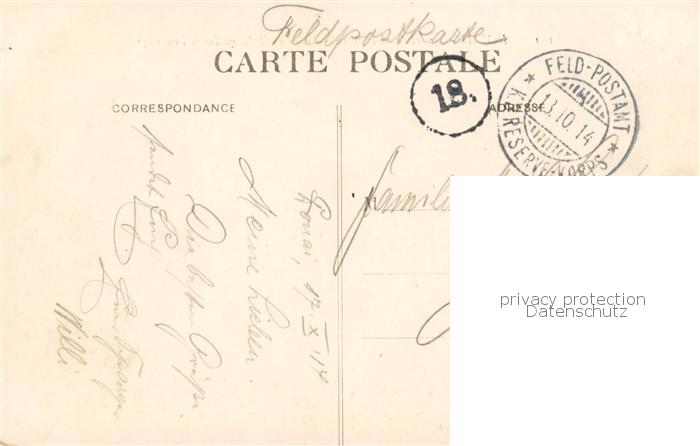 Feldpostkarte
CARTE POSTALE
18.
FELD-POSTAMT
13.10.14
RESERVE-KORPS
CORRESPONDANCE
ADRESSE
Douai, 17.X.14
Meine Lieben.
Die besten Grüße
sendet Euch
Euer
Willi
Familie
privacy protection
Datenschutz